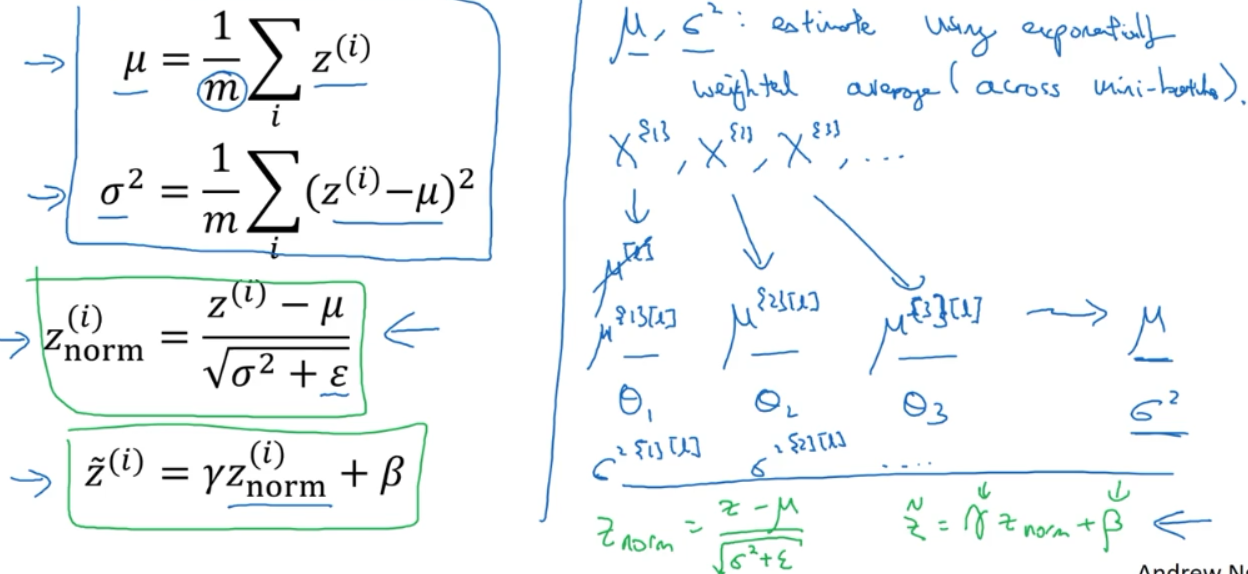 μ = 1/m ∑_i z^(i)
σ² = 1/m ∑_i (z^(i) − μ)²
z_norm^(i) = (z^(i) − μ) / √(σ² + ε)
z̃^(i) = γz_norm^(i) + β
μ, σ² : estimate using exponentially
weighted average (across mini-batches).
X^{1}, X^{2}, X^{3}, ...
μ^[l]
μ^{1}[l] μ^{2}[l] μ^{3}[l] → μ
θ₁ θ₂ θ₃ σ²
σ²^{1}[l] σ²^{2}[l] ....
z_norm = (z − μ) / √(σ² + ε) z̃ = γ z_norm + β
Andrew